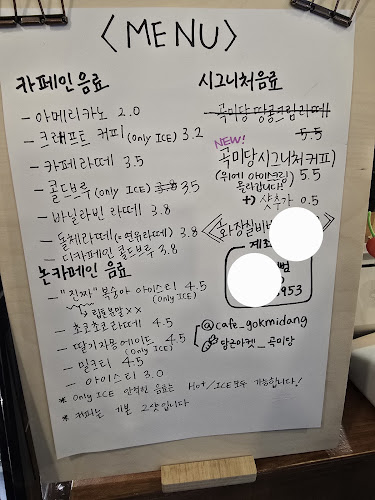 <MENU>
카페인음료
- 아메리카노 2.0
- 크래프트 커피(Only ICE) 3.2
- 카페라떼 3.5
- 콜드브루(only ICE) 3.5
- 바닐라빈 라떼 3.8
- 돌체라떼(=연유라떼) 3.8
- 디카페인 콜드브루 3.8
논카페인 음료
- "진짜" 복숭아 아이스티 4.5
(Only ICE)
↳ 립톤분말 x x
- 초코초코라떼 4.5
- 딸기자몽에이드 4.5
(Only ICE)
- 밀크티 4.5
- 아이스티 3.0
* Only ICE 안적힌 음료는 Hot/ICE 모두 가능합니다!
* 커피는 기본 2샷입니다
시그니처음료
곡미당 땅콩크림라떼
5.5
NEW!
곡미당시그니처커피)
(위에 아이스크림
올라갑니다) 5.5
+) 샷추가 0.5
<화장실비번
계좌
953
@cafe_gokmidang
당근마켓_곡미당